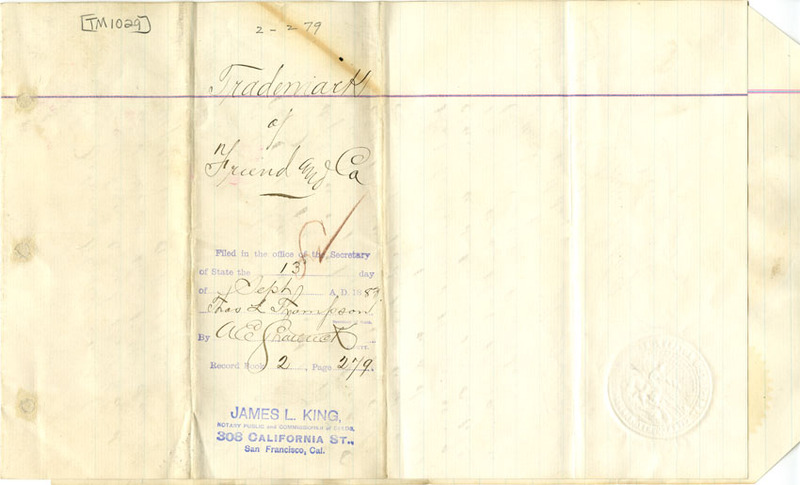 TM1029
2 - 279
Trademark
of
Friend and Co
Filed in the office of the Secretary
of State the 13 day
of Sept A. D. 188
Thos L Thompson
By
Record Book 2, Page 279.
JAMES L. KING,
NOTARY PUBLIC and COMMISSIONER of DEEDS,
308 CALIFORNIA ST.,
San Francisco, Cal.